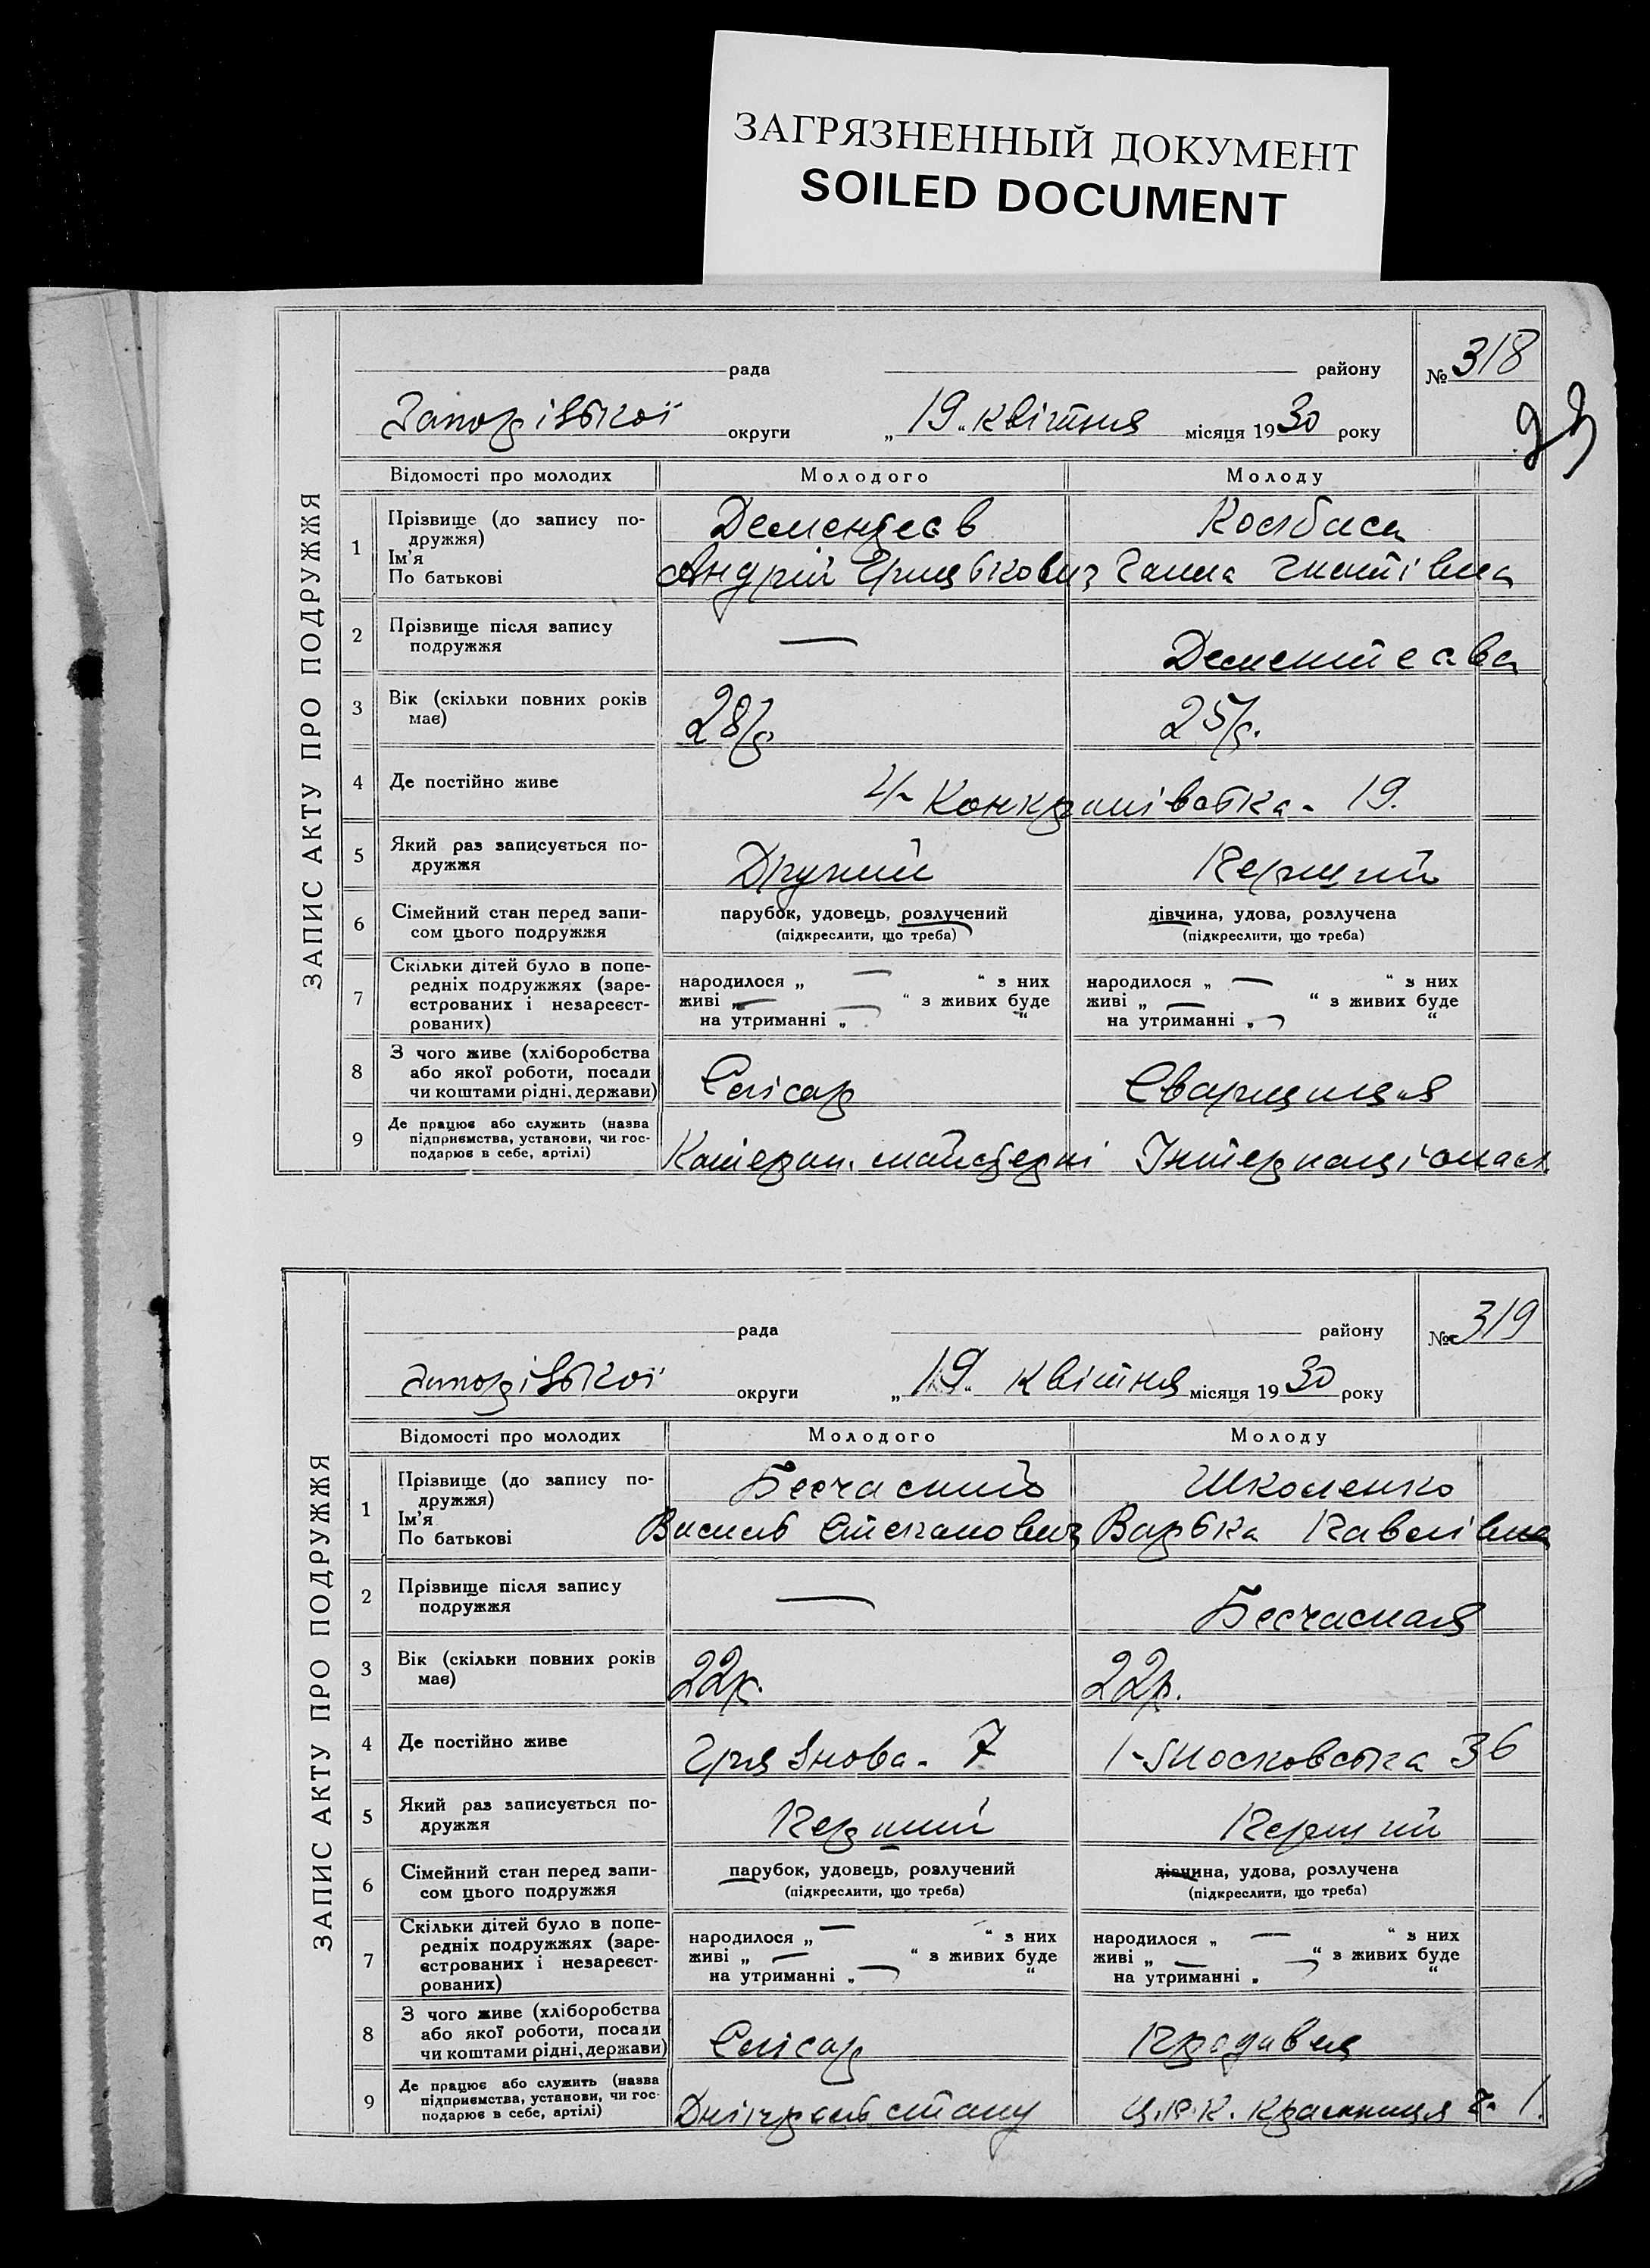 ЗАГРЯЗНЕННЫЙ ДОКУМЕНТ
SOILED DOCUMENT
ЗАПИС АКТУ ПРО ПОДРУЖЖЯ
рада району № 318
Запорізької округи „19“ квітня місяця 1930 року
Відомості про молодих Молодого Молоду
1 Прізвище (до запису подружжя) Дементєєв
Ім'я
По батькові Андрій Ганна Гнатівна
2 Прізвище після запису
подружжя — Дементєєва
3 Вік (скільки повних років
має) 28 р. 25 р.
4 Де постійно живе 19.
5 Який раз записується по-
дружжя Другий Перший
6 Сімейний стан перед запи- парубок, удовець, розлучений дівчина, удова, розлучена
сом цього подружжя (підкреслити, що треба) (підкреслити, що треба)
7 Скільки дітей було в попе-
редніх подружжях (заре- народилося „ — “ з них народилося „ — “ з них
єстрованих і незареєст- живі „ — “ з живих буде живі „ — “ з живих буде
рованих) на утриманні „ — “ на утриманні „ — “
8 З чого живе (хліборобства
або якої роботи, посади Слісар Сварщиця
чи коштами рідні, держави)
9 Де працює або служить (назва
підприємства, установи, чи гос-
подарює в себе, артілі) майстерні Інтернаціонал
ЗАПИС АКТУ ПРО ПОДРУЖЖЯ
рада району № 319
Запорізької округи „19“ квітня місяця 1930 року
Відомості про молодих Молодого Молоду
1 Прізвище (до запису по-
дружжя) Бесчасний Школенко
Ім'я
По батькові Василь Степанович Варька Павлівна
2 Прізвище після запису
подружжя — Бесчасная
3 Вік (скільки повних років
має) 22 р. 22 р.
4 Де постійно живе Грязнова - 7 1-Московська 36
5 Який раз записується по-
дружжя Перший Перший
6 Сімейний стан перед запи- парубок, удовець, розлучений дівчина, удова, розлучена
сом цього подружжя (підкреслити, що треба) (підкреслити, що треба)
7 Скільки дітей було в попе-
редніх подружжях (заре- народилося „ — “ з них народилося „ — “ з них
єстрованих і незареєст- живі „ — “ з живих буде живі „ — “ з живих буде
рованих) на утриманні „ — “ на утриманні „ — “
8 З чого живе (хліборобства
або якої роботи, посади Слісар Продавец
чи коштами рідні, держави)
9 Де працює або служить (назва
підприємства, установи, чи гос-
подарює в себе, артілі) Ц.Р.К. 1.